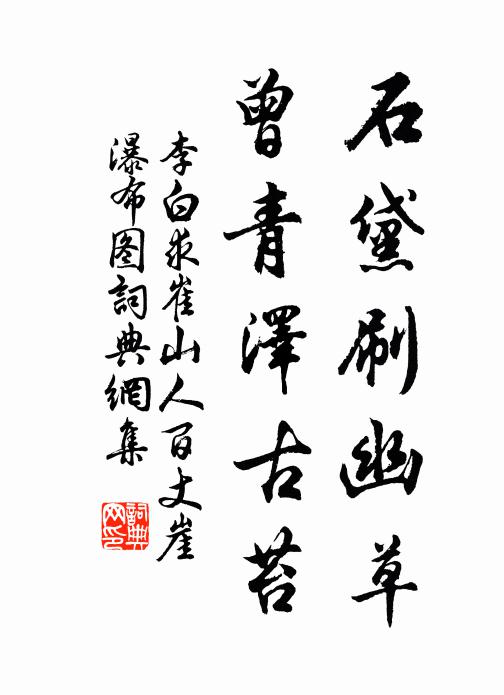 石黛刷幽草
曾青澤古苔
李白求崔山人百丈崖
瀑布图詞典網集
詞典
网印